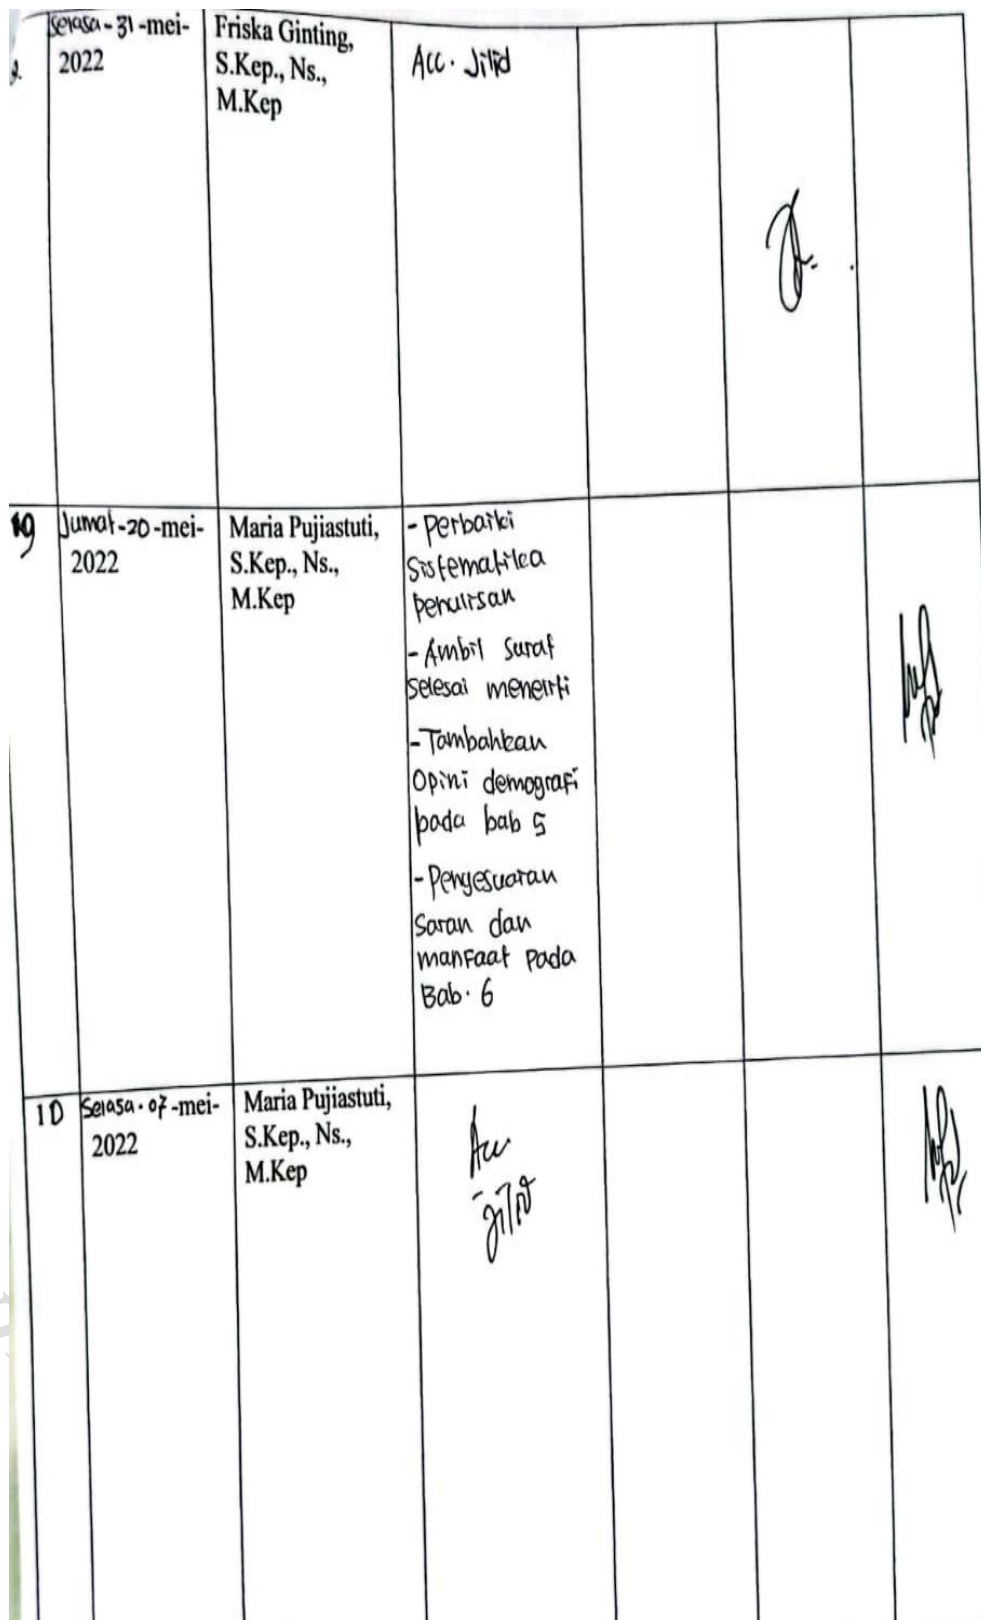 Selasa-31-mei-
2022
Friska Ginting,
S.Kep., Ns.,
M.Kep
Acc. Jilid
9
Jumat-20-mei-
2022
Maria Pujiastuti,
S.Kep., Ns.,
M.Kep
- Perbaiki
Sistematika
penulisan
- Ambil surat
selesai meneliti
- Tambahkan
Opini demografi
pada bab 5
- Penyesuaian
Saran dan
manfaat pada
Bab. 6
10
Selasa.07-mei-
2022
Maria Pujiastuti,
S.Kep., Ns.,
M.Kep
Acc
jilid